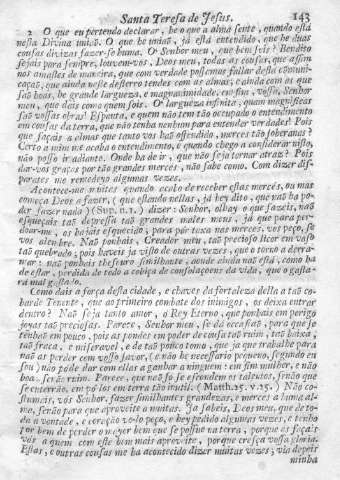 Santa Teresa de Jesus. 143
2 O que eu pertendo declarar, he o que a alma sente, quando está
nesta Divina uniaõ. O que he uniaõ, já está entendido, que he duas
cousas divizas fazer-se huma. O' Senhor meu, que bem sois? Bendito
sejais para sempre, louvem-vos, Deos meu, todas as cousas, que assim
nos amastes de maneira, que com verdade possamos fallar desta communi-
caçaõ, que ainda neste desterro tendes com as almas; e ainda com as que
saõ boas, he grande largueza, e magnanimidade, em fim, vossa, Senhor
meu, que dais como quem sois. O' largueza infinita, quam magnificas
saõ vossas obras! Espanta, a quem naõ tem taõ occupado o entendimento
em cousas da terra, que naõ tenha nenhum para entender verdades! Pois
que façais a almas que tanto vos haõ offendido, mercês taõ soberanas?
Certo a mim me acaba o entendimento, e quando chego a considerar nisto,
naõ posso ir adiante. Onde ha de ir, que naõ seja tornar atraz? Pois
dar-vos graças por taõ grandes mercês, naõ sabe como. Com dizer dis-
parates me remedeyo algumas vezes.
Acontece-me muitas quando acabo de receber estas mercês, ou mas
começa Deos a fazer, (que estando nellas, já hey dito, que naõ ha po-
der fazer nada) (Sup. n. 1.) dizer: Senhor, olhay o que fazeis, naõ
esqueçais taõ depressa taõ grandes males meus, já que para per-
doar-me, os hajais esquecido, para pôr taxa nas mercês, vos peço, se
vos alembre. Naõ ponhais, Creador meu, taõ precioso licor em vaso
taõ quebrado; pois haveis já visto de outras vezes, que o torno a derra-
mar: naõ ponhais thesouro similhante, aonde ainda naõ está, como ha
de estar, perdida de todo a cobiça de consolaçoens da vida, que o gasta-
rá mal gastado.
Como dais a força desta cidade, e chaves da fortaleza della a taõ co-
barde Tenente, que ao primeiro combate dos inimigos, os deixa entrar
dentro? Naõ seja tanto amor, o Rey Eterno, que ponhais em perigo
joyas taõ preciosas. Parece, Senhor meu, se dá occasiaõ, para que se
tenhaõ em pouco, pois as pondes em poder de cousa taõ ruim, taõ baixa,
taõ fraca, e miseravel, e de taõ pouco tomo, que já que trabalhe para
naõ as perder com vosso favor, (e naõ he necessario pequeno, segundo eu
sou) naõ póde dar com ellas a ganhar a ninguem: em fim mulher, e naõ
boa, senaõ ruim. Parece, que naõ só se escondem os talentos, senaõ que
se enterraõ, em pô los em terra taõ inutil. (Matth. 25. v. 25.) Naõ cos-
tumais, vós Senhor, fazer similhantes grandezas, e mercês a huma al-
ma, senaõ para que aproveite a muitas. Já sabeis, Deos meu, que de to-
da a vontade, e coraçaõ volo peço, e hey pedido algumas vezes, e tenho
por bem de perder o mayor bem que se possue na terra, porque as façais
vós a quem com este bem mais aproveite, porque cresça vossa gloria.
Estas, e outras cousas me ha acontecido dizer muitas vezes; via depois
minha